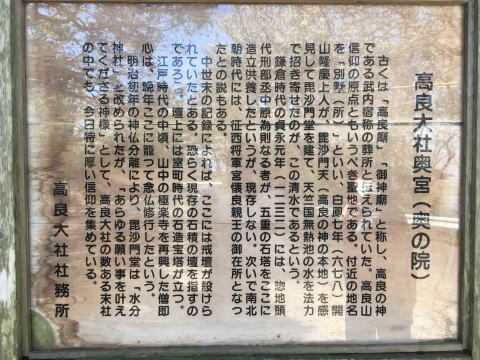 高良大社奥宮（奥の院）
古くは「高良廟」「御神廟」と称し、高良の神
である武内宿祢の葬所と伝えられていた。高良山
信仰の原点ともいうべき聖地である。付近の地名
を「別墅（所）」といい、白鳳七年（六七八）開
山隆慶上人が、毘沙門天（高良の神の本地）を感
見して毘沙門堂を建て、天竺国無熱池の水を法力
で招き寄せたのが、この清水であるという。
鎌倉時代の貞永元年（一二三二）には、惣地頭
代刑部丞中原為則なる者が、五重の石塔をここに
造立供養したというが、現存しない。次いで南北
朝時代には、征西将軍宮懐良親王の御在所となっ
たとの説もある。
中世末の記録によれば、ここには戒壇が設けら
れていたとある。恐らく現存の石積の壇を指すの
であろう。壇上には室町時代の石造宝塔が立つ。
江戸時代の中頃、山中の極楽寺を再興した僧即
心は、晩年ここに籠って念仏修行したという。
明治初年の神仏分離により、毘沙門堂は「水分
神社」と改められたが、「あらゆる願い事を叶え
てくださる神様」として、高良大社の数ある末社
の中でも、今日特に厚い信仰を集めている。
高良大社社務所